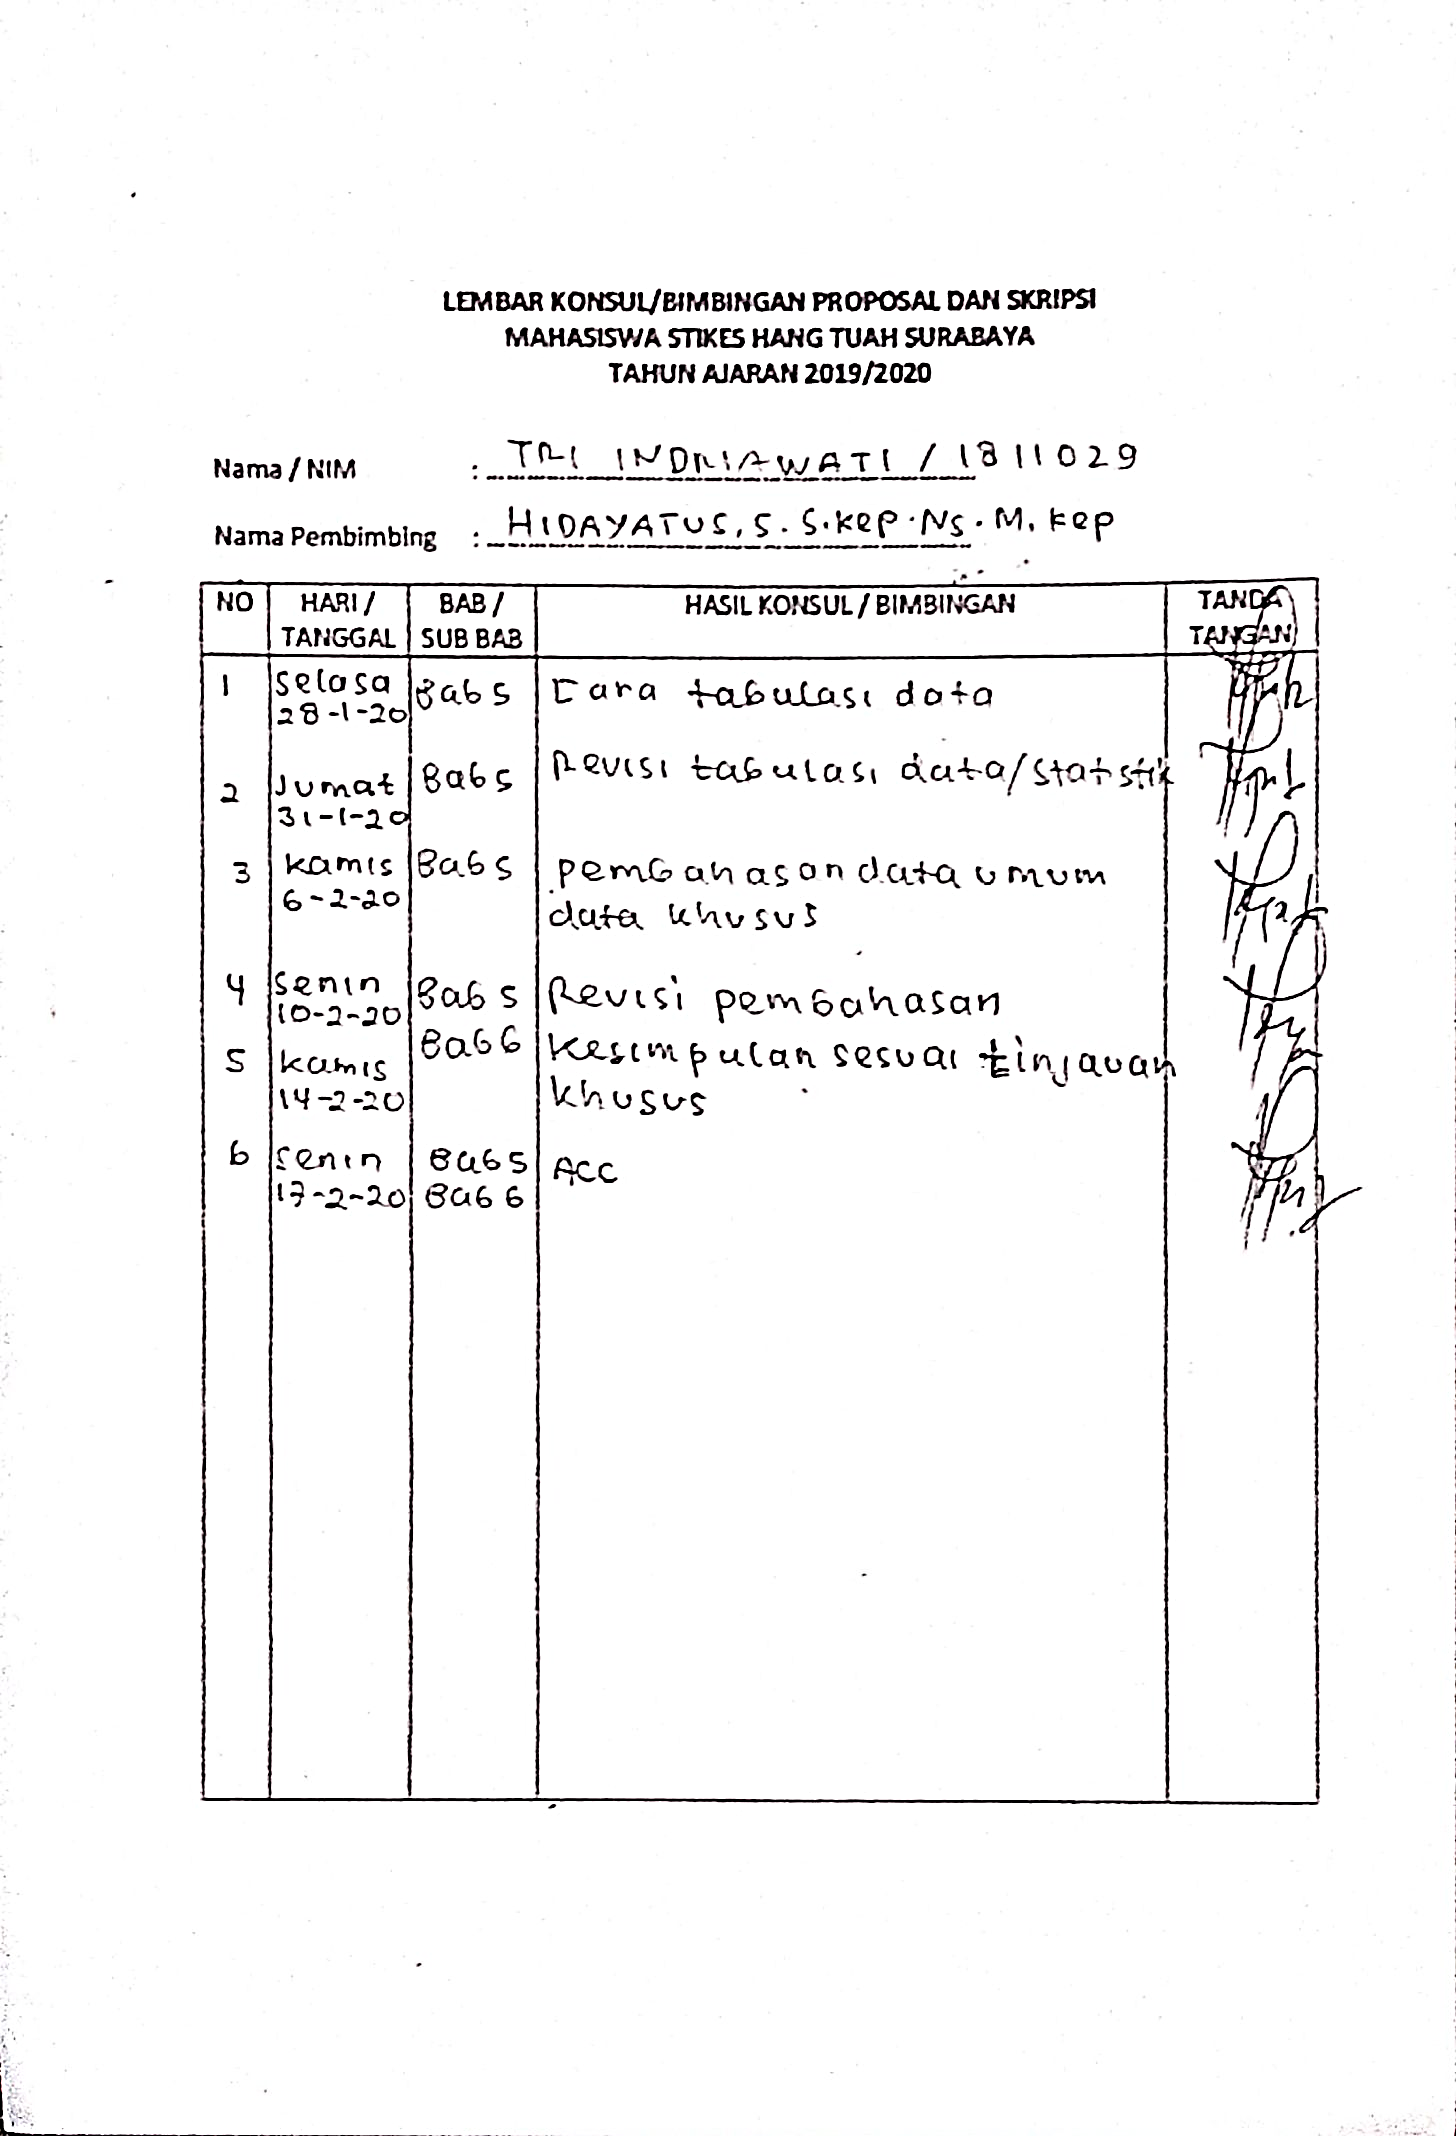 LEMBAR KONSUL/BIMBINGAN PROPOSAL DAN SKRIPSI
MAHASISWA STIKES HANG TUAH SURABAYA
TAHUN AJARAN 2019/2020
Nama / NIM : TRI INDRIAWATI / 1811029
Nama Pembimbing : HIDAYATUS, S. S.kep.Ns. M. kep
NO HARI / TANGGAL BAB / SUB BAB HASIL KONSUL / BIMBINGAN TANDA TANGAN
1 Selasa Bab 5 Cara tabulasi data
28-1-20
2 Jumat Bab 5 Revisi tabulasi data/statstik
31-1-20
3 kamis Bab 5 pembahasan data umum
6-2-20 data khusus
4 Senin Bab 5 Revisi pembahasan
10-2-20
5 kamis Bab 6 Kesimpulan sesuai tinjauan
14-2-20 khusus
6 Senin Bab 5 ACC
17-2-20 Bab 6